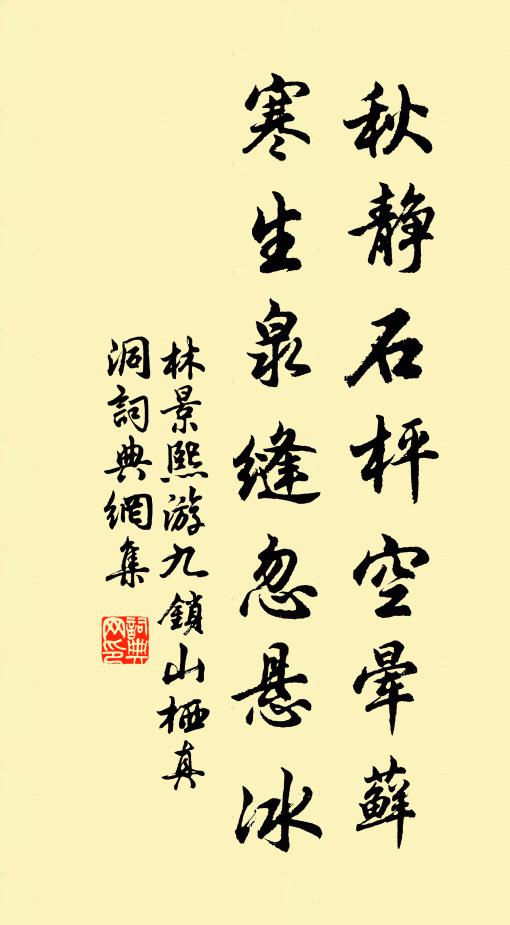 秋靜石枰空暈蘚
寒生泉縫忽悬冰
林景熙游九鎖山栖真
洞詞典網集
詞典
网印